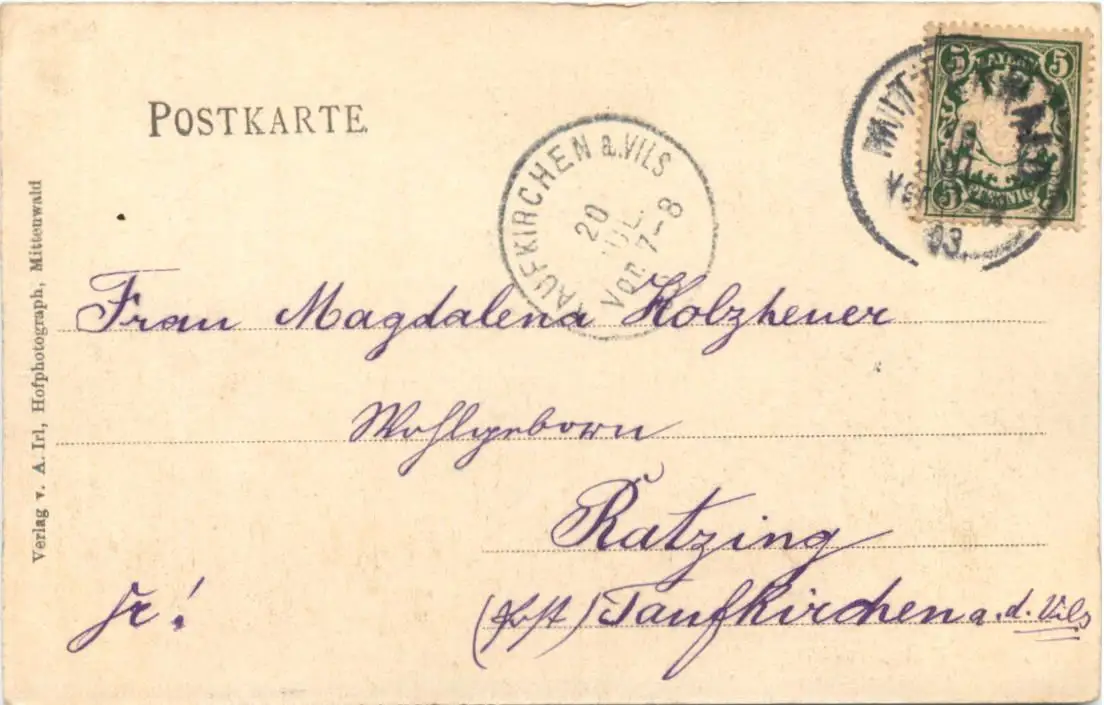 POSTKARTE
5 BAYERN 5
5 PFENNIG 5
MITTENWALD
03
TAUFKIRCHEN a. VILS
20
JUL
Vor. 7-8
Verlag v. A. Irl, Hofphotograph, Mittenwald
Frau Magdalena Holzheuer
Wohlgeborn
Ratzing
(Post) Taufkirchen a. d. Vils